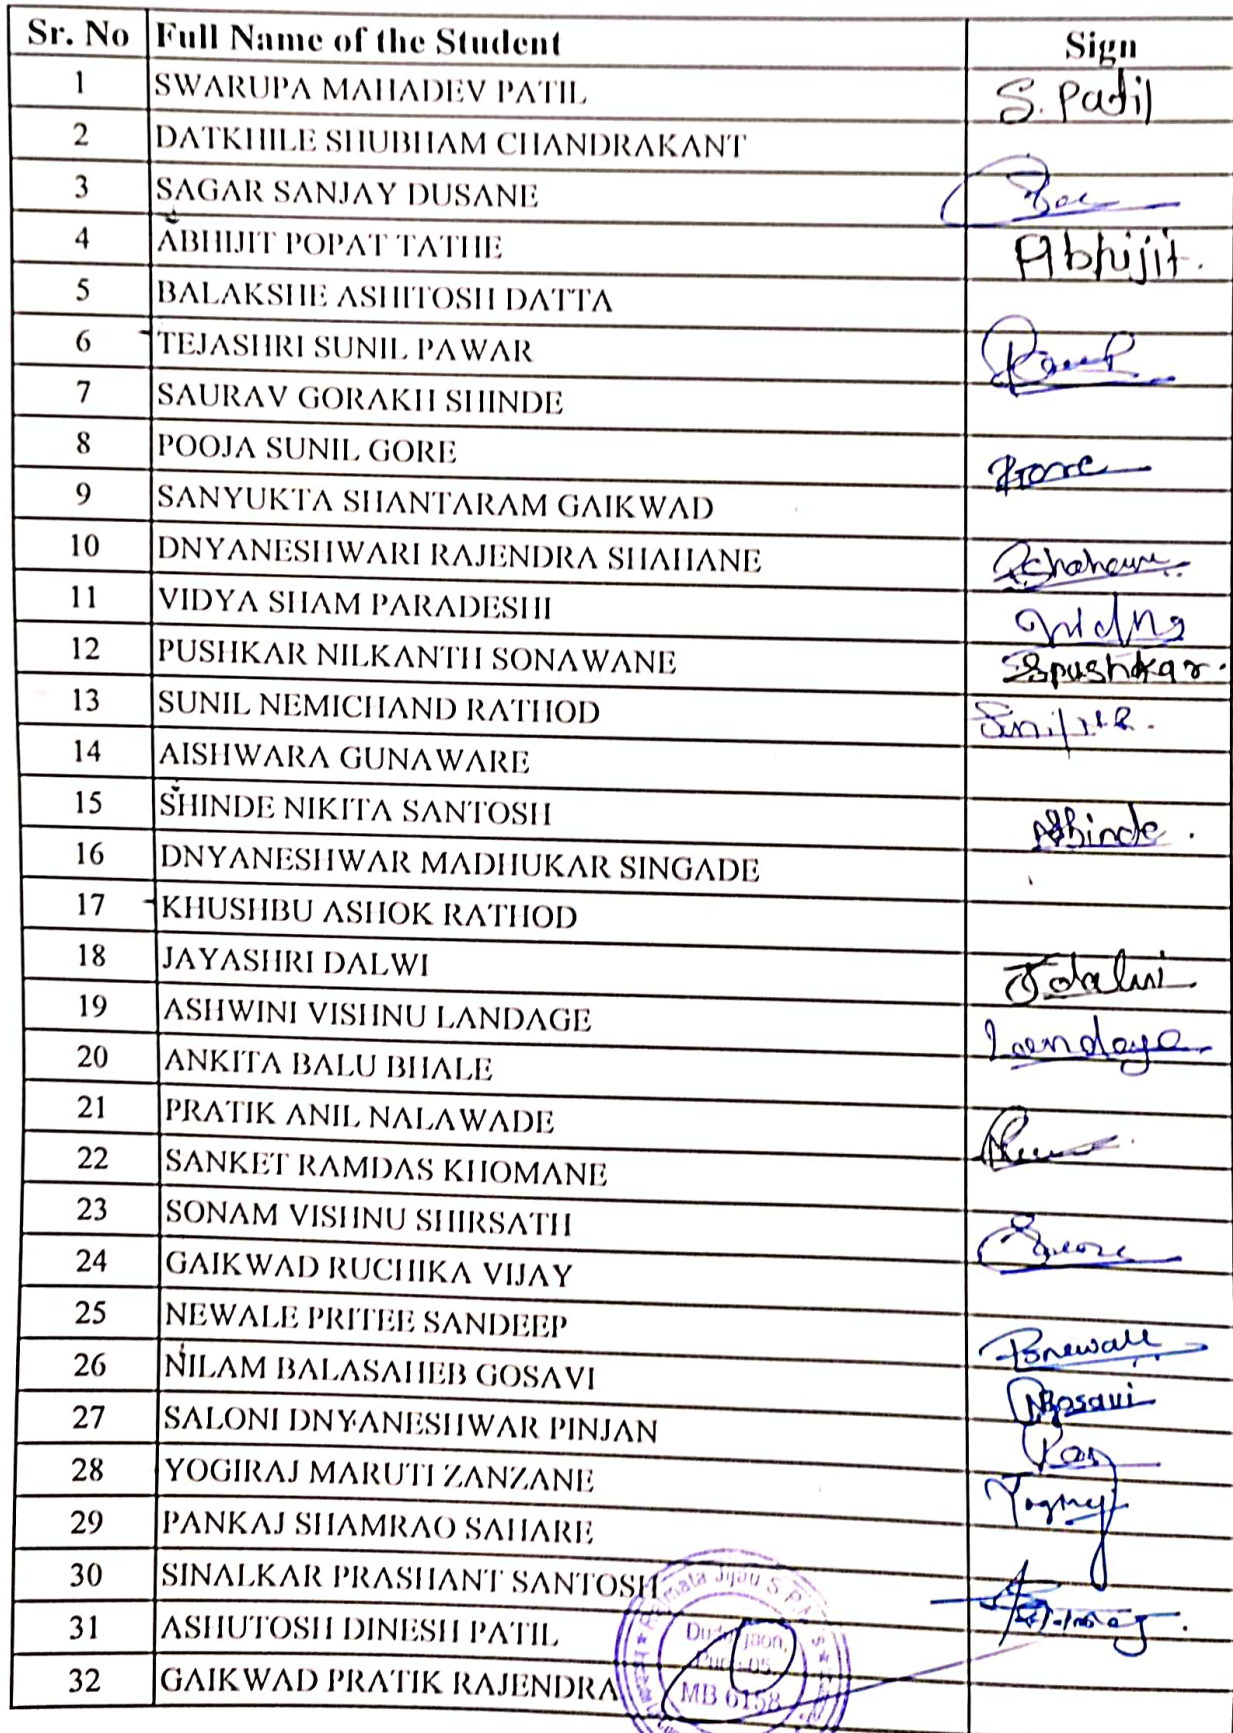 Sr. No Full Name of the Student Sign
1 SWARUPA MAHADEV PATIL S. Patil
2 DATKHILE SHUBHAM CHANDRAKANT
3 SAGAR SANJAY DUSANE
4 ABHIJIT POPAT TATHE Abhijit.
5 BALAKSHE ASHITOSH DATTA
6 TEJASHRI SUNIL PAWAR
7 SAURAV GORAKH SHINDE
8 POOJA SUNIL GORE
9 SANYUKTA SHANTARAM GAIKWAD
10 DNYANESHWARI RAJENDRA SHAHANE
11 VIDYA SHAM PARADESHI
12 PUSHKAR NILKANTH SONAWANE Spushkar.
13 SUNIL NEMICHAND RATHOD
14 AISHWARA GUNAWARE
15 SHINDE NIKITA SANTOSH NShinde.
16 DNYANESHWAR MADHUKAR SINGADE
17 KHUSHBU ASHOK RATHOD
18 JAYASHRI DALWI Jdalwi
19 ASHWINI VISHNU LANDAGE Landage
20 ANKITA BALU BHALE
21 PRATIK ANIL NALAWADE
22 SANKET RAMDAS KHOMANE
23 SONAM VISHNU SHIRSATH
24 GAIKWAD RUCHIKA VIJAY
25 NEWALE PRITEE SANDEEP Psnewale
26 NILAM BALASAHEB GOSAVI NBGosavi
27 SALONI DNYANESHWAR PINJAN
28 YOGIRAJ MARUTI ZANZANE Yogiraj
29 PANKAJ SHAMRAO SAHARE
30 SINALKAR PRASHANT SANTOSH
31 ASHUTOSH DINESH PATIL
32 GAIKWAD PRATIK RAJENDRA
MB 6158